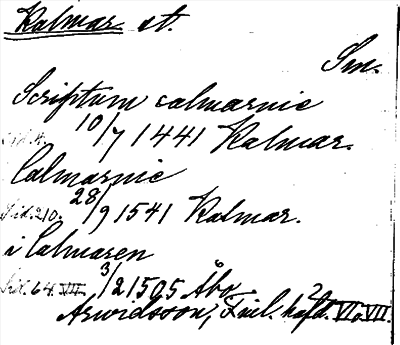 Kalmar st.
Sm.
Scriptum calmarnie
10/7 1441 Kalmar.
Calmarnie
Sid. 210. 28/9 1541 Kalmar.
i Calmaren
Sid. 64. VII. 3/2 1505 Åbo.
Arwidsson, Finl. häfd. VI o. VII.